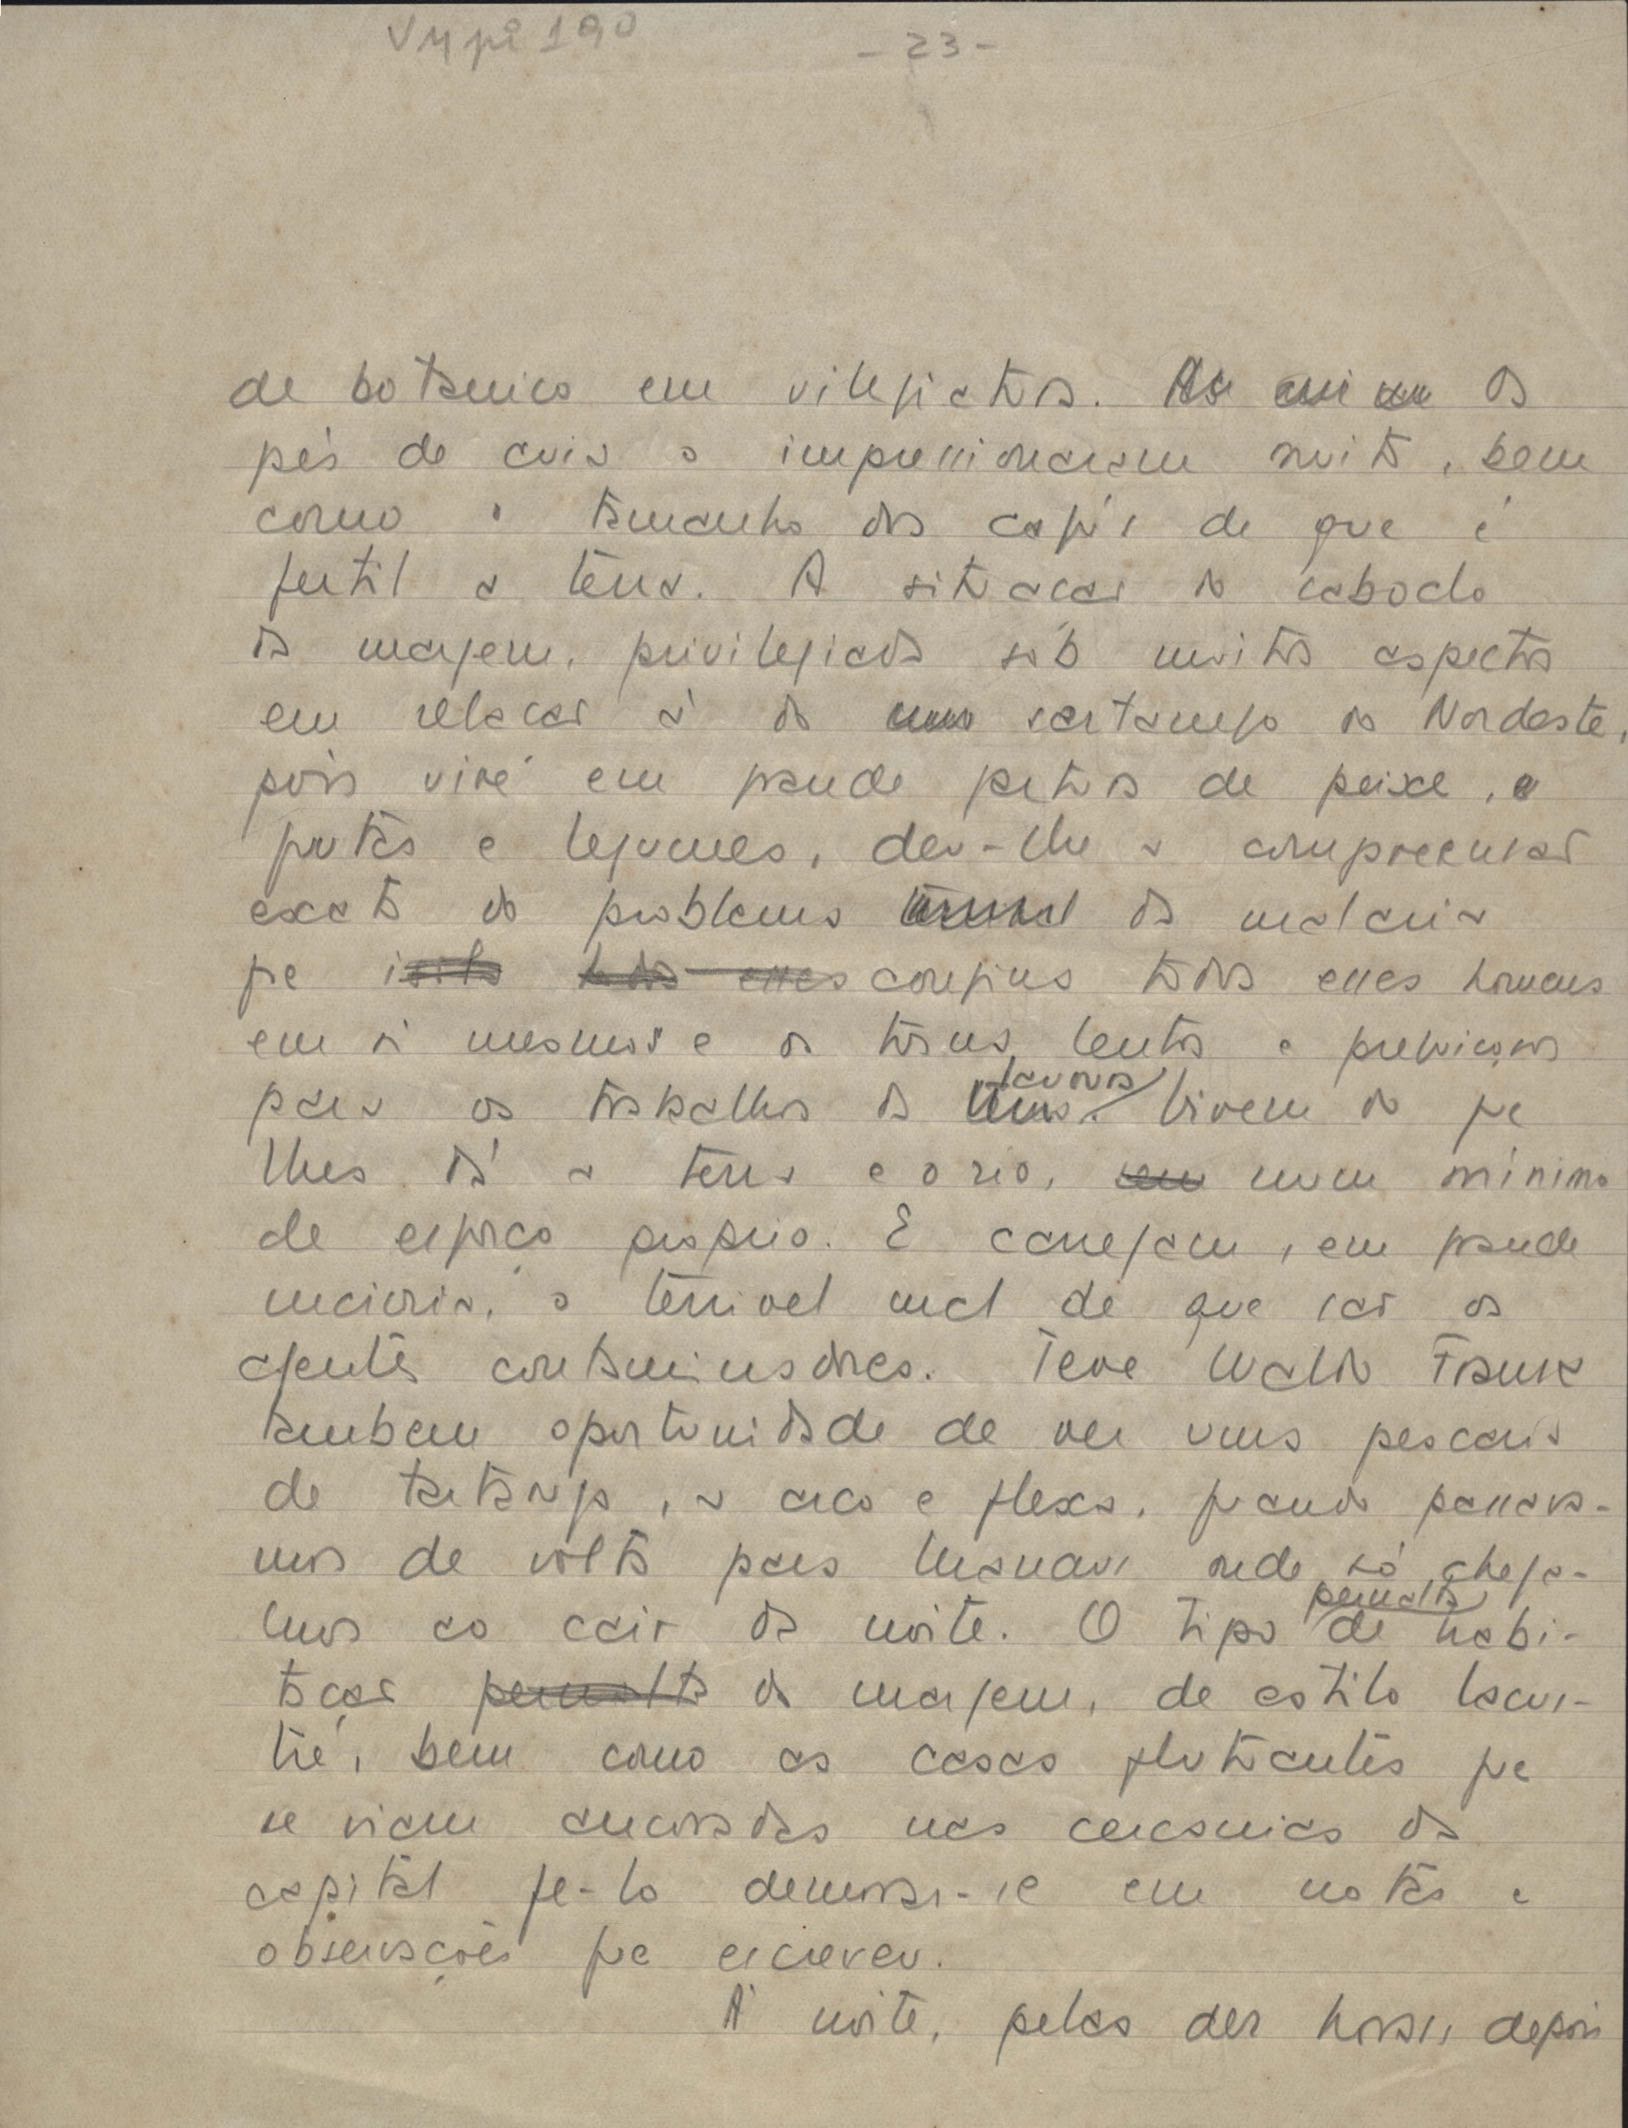 - 23 -
de botanico em vilegiatura. Os
pés de cuia o impressionaram muito, bem
como o tamanho dos capís de que é
fertil a terra. A situação do caboclo
da margem, privilegiada sób muitos aspectos
em relação á do sertanejo do Nordeste,
pois vive em grande fartura de peixe,
frutas e legumes, deu-lhe a compreensão
exata do problema da malaria
que confina todos esses homens
em si mesmos e os torna lentos e preguiçosos
para os trabalhos da lavoura. Vivem do que
lhes dá a terra e o rio, num minimo
de esforço proprio. E carregam, em grande
maioria, o terrivel mal de que são os
agentes contaminadores. Teve Waldo Frank
tambem oportunidade de ver uma pescaria
de tartaruga, a arco e flexa, quando passava-
mos de volta para Manaus onde só chega-
mos ao cair da noite. O tipo pernalta de habi-
tação pernalta da margem, de estilo lacus-
tre, bem como as casas flutuantes que
se viam ancoradas nas cercanias da
capital fe-lo demorar-se em notas e
observações que escreveu.
Á noite, pelas dez horas, depois